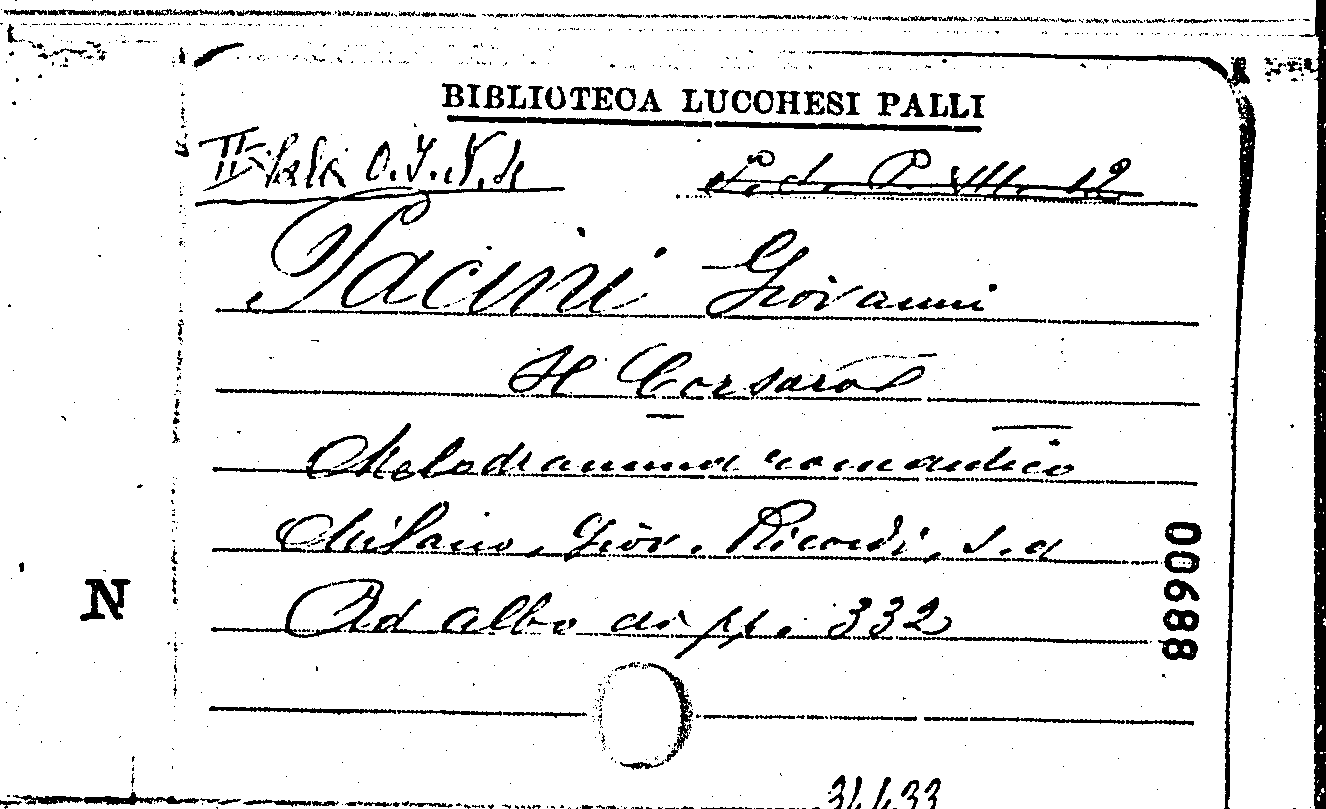 BIBLIOTECA LUCCHESI PALLI
II Sala O.I.V.4 P. VII. 12
Pacini Giovanni
Il Corsaro
Melodramma romantico
Milano, Giov. Ricordi, s.a
Ad albo di pp. 332
N
00688
34433